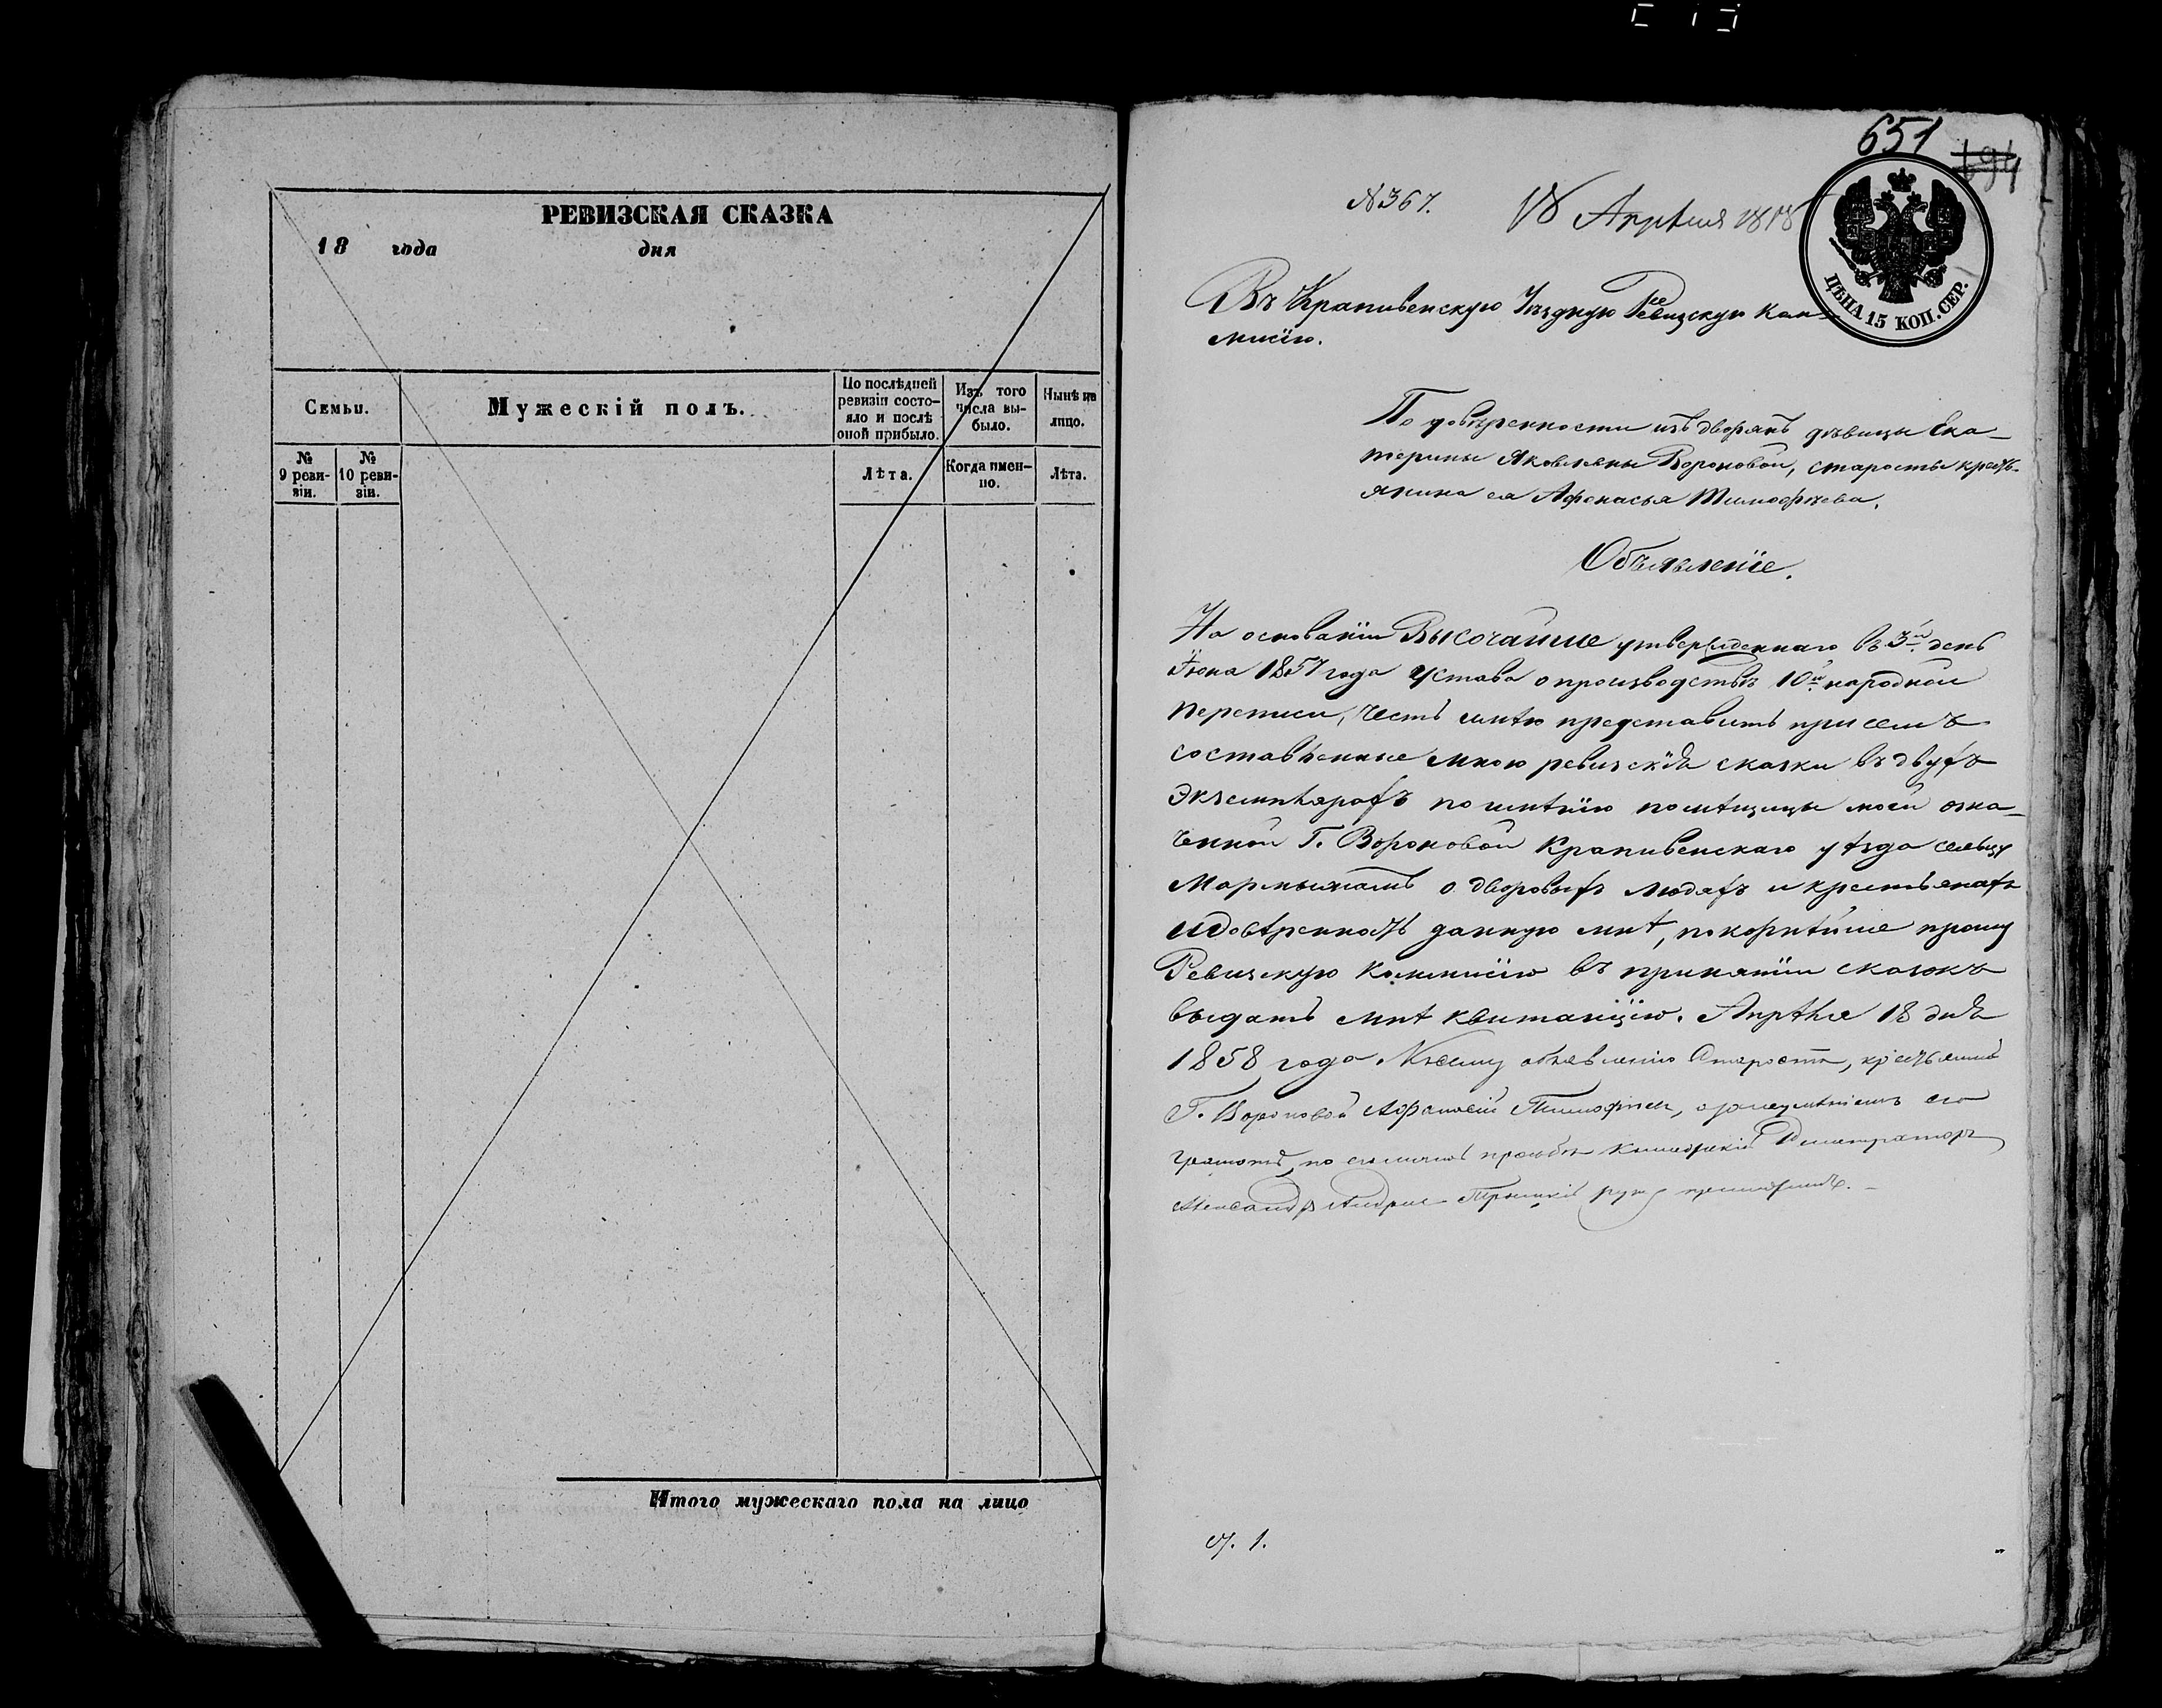 РЕВИЗСКАЯ СКАЗКА
18 года дня
Семьи.
Мужескій полъ.
По послѣдней ревизіи состо-
яло и послѣ
оной прибыло.
Изъ того
числа вы-
было.
Нынѣ на
лицо.
№
9 реви-
зіи.
№
10 реви-
зіи.
Лѣта.
Когда имен-
но.
Лѣта.
Итого мужескаго пола на лицо
651
694
№ 367.
18 Апрѣля 1858
ЦѢНА 15 КОП. СЕР.
Въ Крапивенскую Уѣздную Ревизскую Ком-
мисію.
По довѣренности изъ дворянъ дѣвицы Ека-
терины Яковлевны Вороновой, старосты кресть-
янина ея Афонасья Тимофѣева.
Объявленіе.
На основаніи Высочайше утвержденнаго въ 3й день
Іюня 1857 года Устава о производствѣ 10й народной
переписи, честь имѣю представить при семъ
составленные мною ревизскія сказки въ двухъ
экземплярахъ по имѣнію помѣщицы моей озна-
ченной Г. Вороновой Крапивенскаго уѣзда сельцу
о дворовыхъ людяхъ и крестьянахъ
и довѣренность данную мнѣ, покорнѣйше прошу
Ревизскую Коммисію въ принятіи сказокъ
выдать мнѣ квитанцію. Апрѣля 18 дня
1858 года. Къ сему объявленію Староста, крестьянинъ
Г. Вороновой Афонасій Тимофѣевъ, а за неумѣніемъ его
грамотѣ, по его личной прозьбѣ Коллежскій Регистраторъ
Александръ Андреевъ руку приложилъ.
ч. 1.